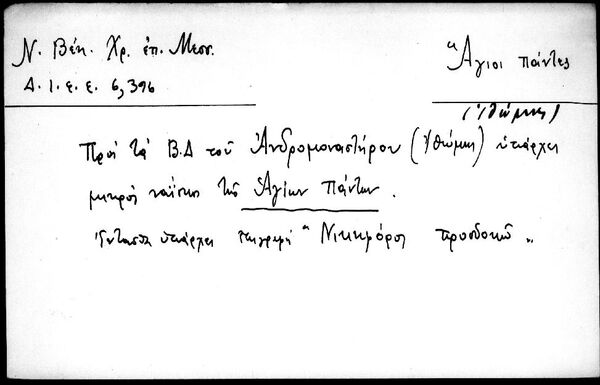 Ν. Βέη. Χρ. ἐπ. Μεσσ.
Δ. Ι. Ε. Ε. 6, 396
Ἅγιοι πάντες
(Ἰθώμης)
Πρὸς τὰ Β.Δ τοῦ Ἀνδρομοναστήρου (Ἰθώμης) ὑπάρχει
μικρὸς ναΐσκος τῶν Ἁγίων Πάντων.
Ἐνταῦθα ὑπάρχει ἐπιγραφή "Νικηφόρος προσδοκῶ"